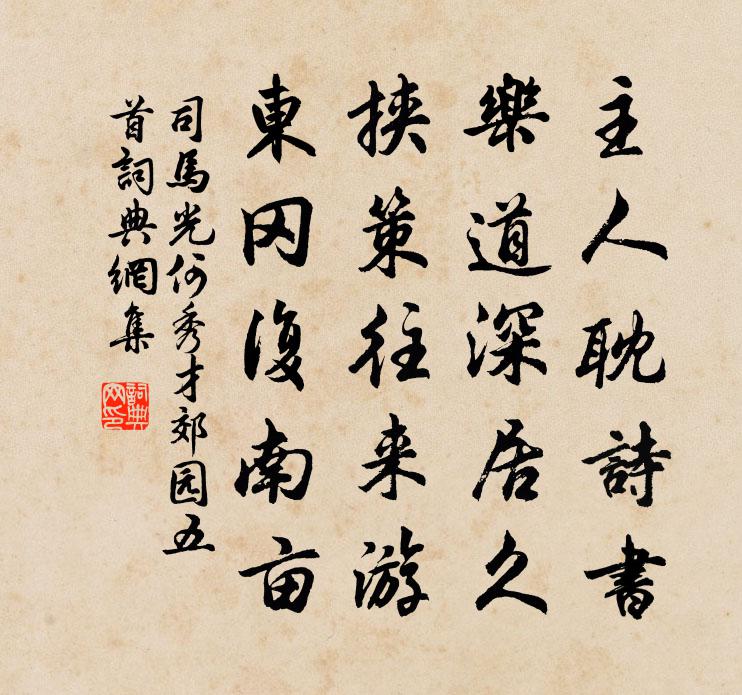 主人耽詩書
樂道深居久
挾策往来游
東冈復南亩
司馬光何秀才郊园五
首詞典網集
詞典
网印